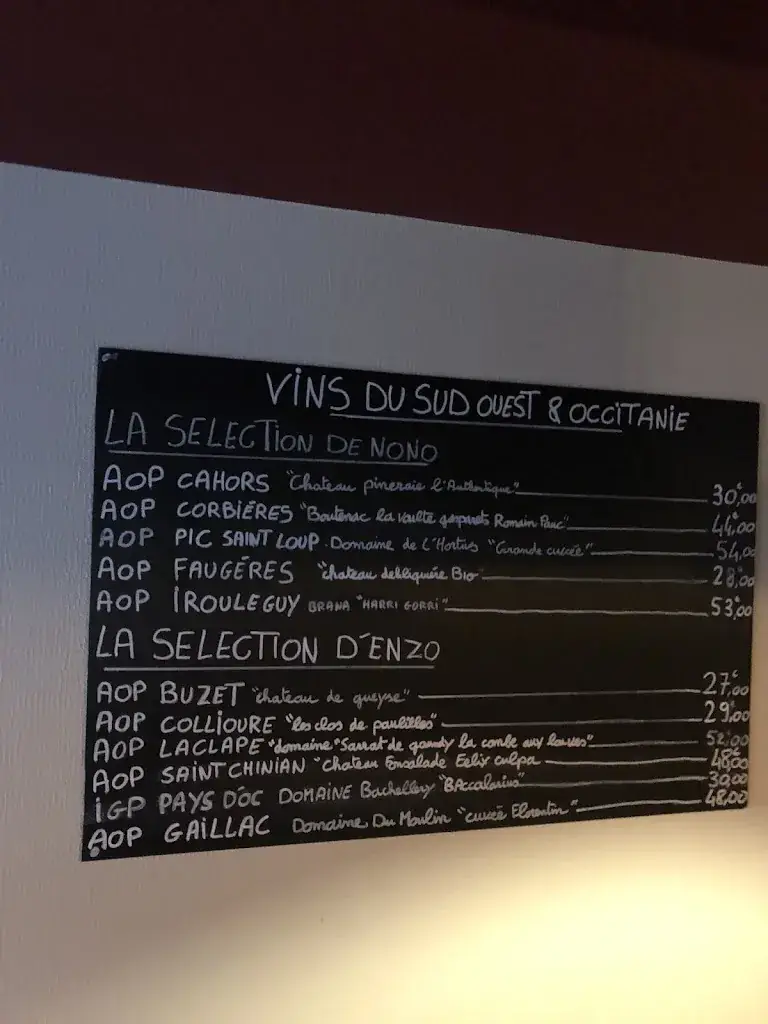 VINS DU SUD OUEST & OCCITANIE
LA SELECTION DE NONO
AOP CAHORS "Chateau pineraie l'Authentique" 30,00€
AOP CORBIÈRES "Boutenac la 44,00
AOP PIC SAINT LOUP. Domaine de L'Hortus "Grande cuvée" 54,00
AOP FAUGÉRES "chateau Bio 28,00
AOP IROULEGUY BRANA "HARRI GORRI" 53,00
LA SELECTION D'ENZO
AOP BUZET "chateau de gueyse" 27,00€
AOP COLLIOURE "les clos de paulilles" 29,00
AOP LACLAPE "domaine" Sarrat de goundy la combe aux louves" 52,00
AOP SAINT CHINIAN "Chateau Felix culpa 48,00
IGP PAYS D'OC DOMAINE Bachellery 30,00
AOP GAILLAC Domaine Du Moulin "cuvée Florentin" 48,00